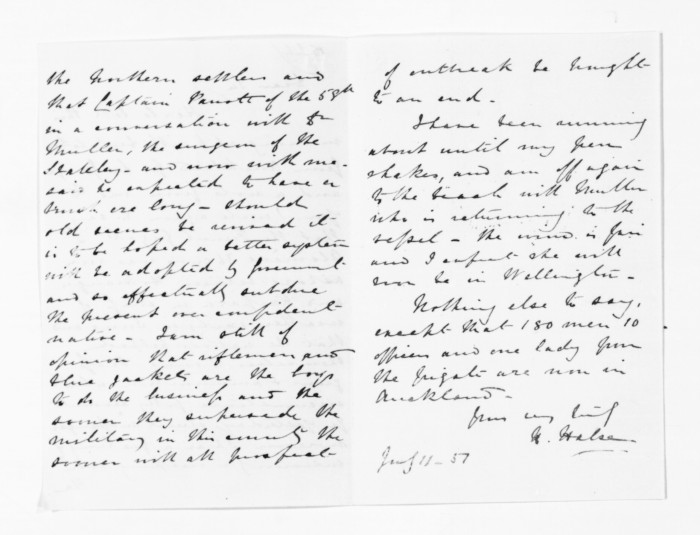 the Northern settlers and
that Captain Parrott of the 58th
in a conversation with Dr
Muller, the surgeon of the
Stateley - and now with me -
said he expected to have a
brush ere long - should
old scenes be revived it
is to be hoped a better system
will be adopted by Government
and so effectually subdue
the present over confident
native - I am still of
opinion that riflemen and
blue jackets are the boys
to do the business and the
sooner they supersede the
military in this country the
sooner will all prospect
of outbreak be brought
to an end -
I have been running
about until my pen
shakes, and am off again
to the beach with Muller
who is returning to the
vessel - the wind is fair
and I expect she will
soon be in Wellington -
Nothing else to say,
except that 180 men 10
officers and one lady from
the frigate are now in
Auckland -
Yours very truly
H. Halse
11 - 51